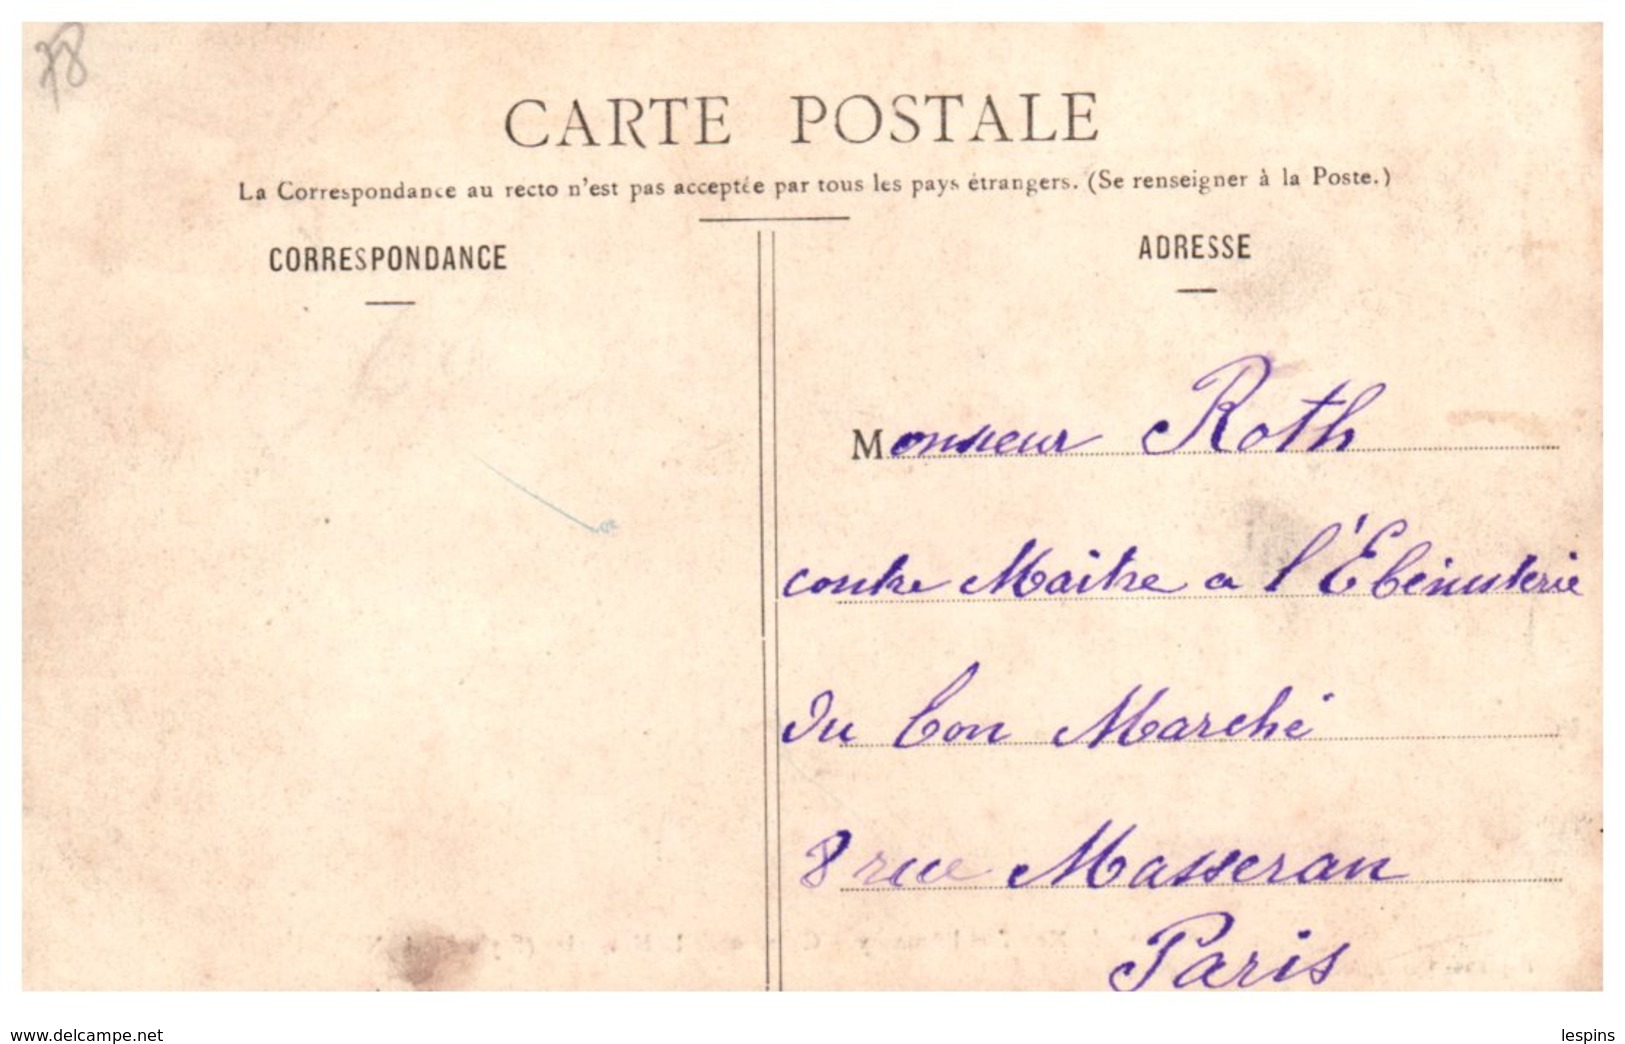 78
CARTE POSTALE
La Correspondance au recto n'est pas acceptée par tous les pays étrangers. (Se renseigner à la Poste.)
CORRESPONDANCE
ADRESSE
Monsieur Roth
contre Maître a l'Ébénisterie
Du bon Marché
8 rue Masseran
Paris
www.delcampe.net
lespins